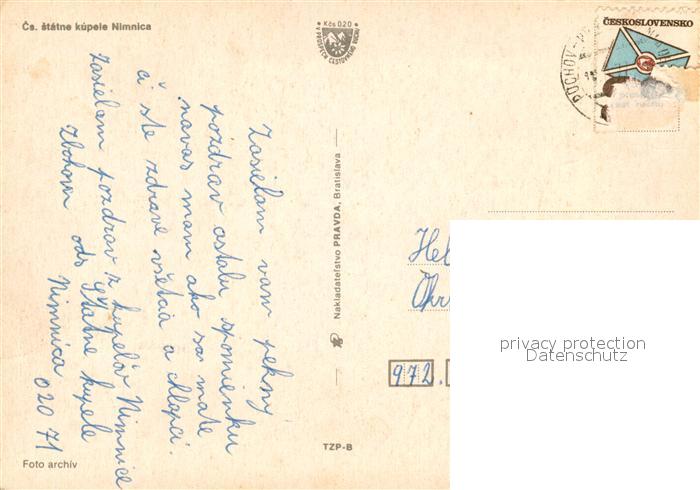 Čs. štátne kúpele Nimnica
Kčs 0.20
V PROSPECH CESTOVNÉHO RUCHU
ČESKOSLOVENSKO
PÚCHOV
Zasielam vam pekný
pozdrav ostalu spomienku
navas mam ako sa mate
či ste zdravé všetcia a chlapci.
Zasielam pozdrav z kupelov Nimnice
Zbohom odo Štatne kupele
Nimnica 020 71
Nakladateľstvo PRAVDA, Bratislava
Hel
Ohr
972.
privacy protection
Datenschutz
TZP-B
Foto archív